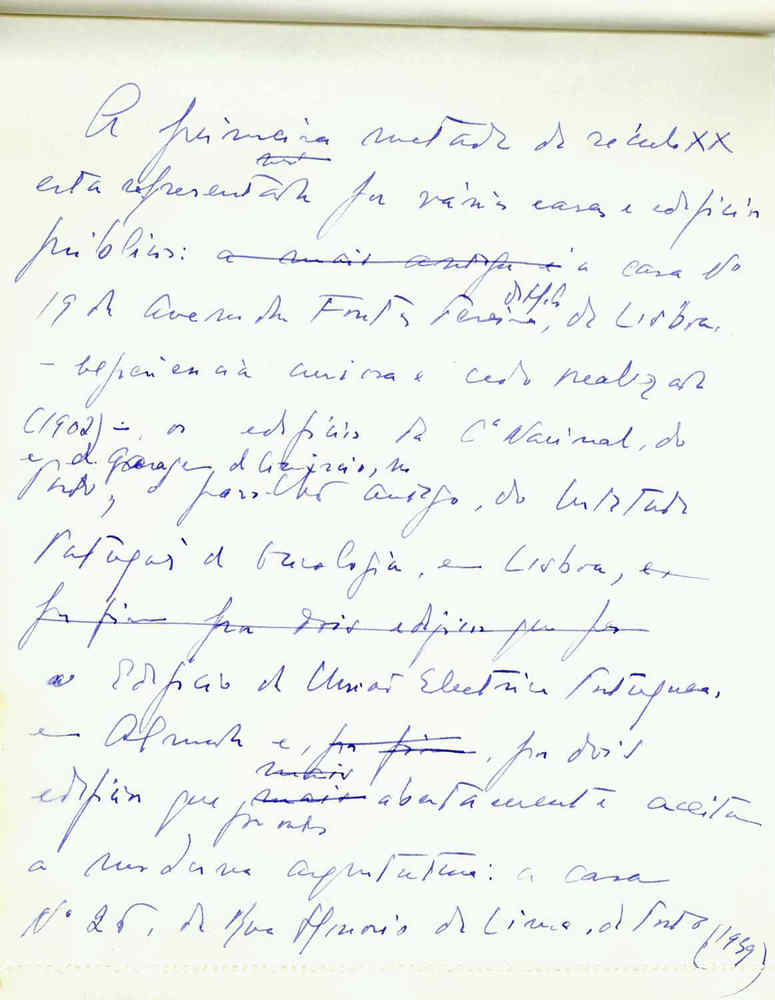 A primeira metade do século XX
está representada por várias casas e edifícios
públicos: a mais antiga é a casa Nº
19 da Avenida Fontes Pereira de M., de Lisboa,
– experiência curiosa e cedo realizada
(1902) –, os edifícios da Cª Nacional, do
e da Garagem d Comércio, no
Porto, o pavilhão antigo, do Instituto
Português de Oncologia, em Lisboa, e
por fim por dois edifícios que por
o Edifício da União Electrica Portuguesa,
em Almada e, por fim, por dois
mais
edifícios que mais abertamente aceitam
a moderna arquitectura: a casa
Nº 26, da Rua Honório de Lima, do Porto (1939)